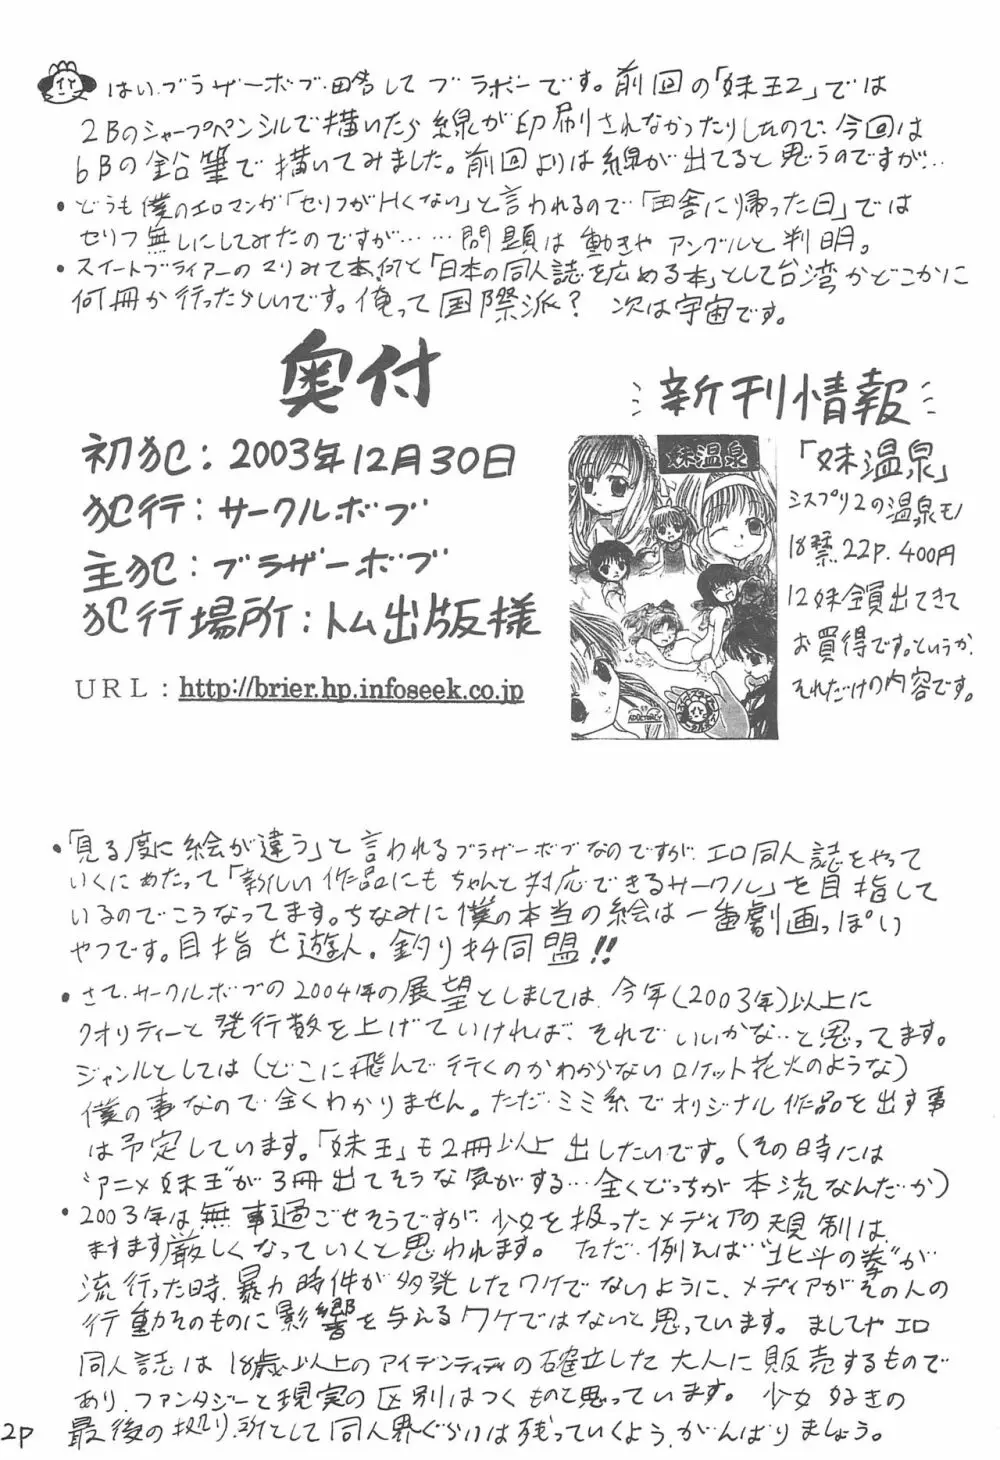 はい、ブラザーボブ田舎してブラボーです。前回の「妹王2」では
2Bのシャープペンシルで描いたら線が印刷されなかったりしたので、今回は
6Bの鉛筆で描いてみました。前回よりは線が出てると思うのですが…
・どうも僕のエロマンガ「セリフがHくない」と言われるので「田舎に帰った日」では
セリフ無しにしてみたのですが……問題は動きやアングルと判明。
・スイートブライアーのマリみて本、何と「日本の同人誌を広める本」として台湾かどこかに
何冊か行ったらしいです。俺って国際派？ 次は宇宙です。
奥付
初犯：2003年12月30日
犯行：サークルボブ
主犯：ブラザーボブ
犯行場所：トム出版様
URL：http://brier.hp.infoseek.co.jp
新刊情報
妹温泉
「妹温泉」
シスプリ2の温泉モノ
18禁 22P. 400円
12妹全員出てきて
お買得です。というか、
それだけの内容です。
・「見る度に絵が違う」と言われるブラザーボブなのですが、エロ同人誌をやって
いくにあたって「新しい作品にもちゃんと対応できるサークル」を目指して
いるのでこうなってます。ちなみに僕の本当の絵は一番劇画っぽい
やつです。目指せ遊人、釣りキチ同盟!!
・さて、サークルボブの2004年の展望としましては、今年(2003年)以上に
クオリティーと発行数を上げていければ、それでいいかな…と思ってます。
ジャンルとしては(どこに飛んで行くのかわからないロケット花火のような)
僕の事なので全くわかりません。ただ、ミミ系でオリジナル作品を出す事
は予定しています。「妹王」も2冊以上出したいです。(その時には
"アニメ妹王"が3冊出てそうな気がする…全くどっちが本流なんだか)
・2003年は無事過ごせそうですが、少女を扱ったメディアの規制は
ますます厳しくなっていくと思われます。ただ、例えば"北斗の拳"が
流行った時、暴力事件が多発したワケでないように、メディアがその人の
行動そのものに影響を与えるワケではないと思っています。ましてやエロ
同人誌は18歳以上のアイデンティティの確立した大人に販売するもので
あり、ファンタジーと現実の区別はつくものと思っています。少女好きの
最後の拠り所として同人界ぐらいは残っていくよう、がんばりましょう。
2P